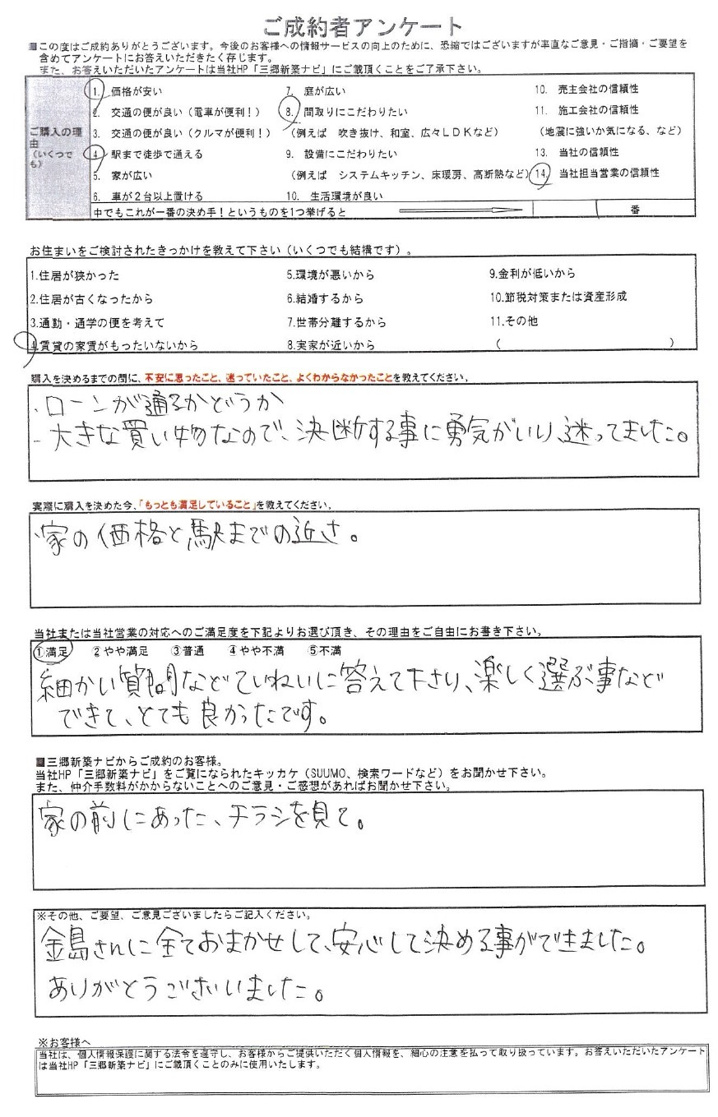 ご成約者アンケート
■この度はご成約ありがとうございます。今後のお客様への情報サービスの向上のために、恐縮ではございますが率直なご意見・ご指摘・ご要望を
含めてアンケートにお答えいただきたく存じます。
また、お答えいただいたアンケートは当社HP「三郷新築ナビ」にご載頂くことをご了承下さい。
ご購入の理由
(いくつでも)
1. 価格が安い
2. 交通の便が良い(電車が便利!)
3. 交通の便が良い(クルマが便利!)
4. 駅まで徒歩で通える
5. 家が広い
6. 車が2台以上置ける
7. 庭が広い
8. 間取りにこだわりたい
(例えば 吹き抜け、和室、広々LDKなど)
9. 設備にこだわりたい
(例えば システムキッチン、床暖房、高断熱など)
10. 生活環境が良い
10. 売主会社の信頼性
11. 施工会社の信頼性
(地震に強いか気になる、など)
13. 当社の信頼性
14. 当社担当営業の信頼性
中でもこれが一番の決め手!というものを1つ挙げると 番
お住まいをご検討されたきっかけを教えて下さい(いくつでも結構です)。
1.住居が狭かった
2.住居が古くなったから
3.通勤・通学の便を考えて
4.賃貸の家賃がもったいないから
5.環境が悪いから
6.結婚するから
7.世帯分離するから
8.実家が近いから
9.金利が低いから
10.節税対策または資産形成
11.その他
( )
購入を決めるまでの間に、不安に思ったこと、迷っていたこと、よくわからなかったことを教えてください。
・ローンが通るかどうか
・大きな買い物なので、決断する事に勇気がいり、迷ってました。
実際に購入を決めた今、「もっとも満足していること」を教えてください。
・家の価格と駅までの近さ。
当社または当社営業の対応へのご満足度を下記よりお選び頂き、その理由をご自由にお書き下さい。
①満足 ②やや満足 ③普通 ④やや不満 ⑤不満
細かい質問などていねいに答えて下さり、楽しく選ぶ事など
できて、とても良かったです。
■三郷新築ナビからご成約のお客様。
当社HP「三郷新築ナビ」をご覧になられたキッカケ(SUUMO、検索ワードなど)をお聞かせ下さい。
また、仲介手数料がかからないことへのご意見・ご感想があればお聞かせ下さい。
家の前にあった、チラシを見て。
※その他、ご要望、ご意見ございましたらご記入ください。
金島さんに全ておまかせして、安心して決める事ができました。
ありがとうございいました。
※お客様へ
当社は、個人情報保護に関する法令を遵守し、お客様からご提供いただく個人情報を、細心の注意を払って取り扱っています。お答えいただいたアンケート
は当社HP「三郷新築ナビ」にご載頂くことのみに使用いたします。